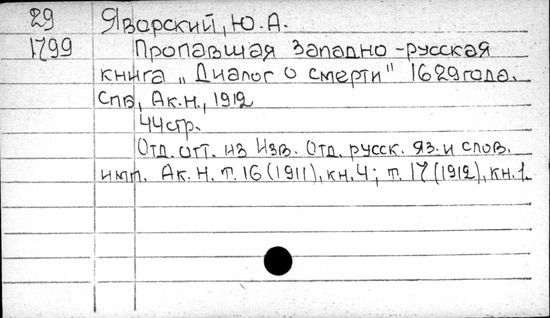 29 Яворский, Ю.А.
1799 Пропавшая западно-русская
книга „Диалог о смерти" 1629 года.
Спв, Ак.н., 1912
44стр.
Отд. отт. из Изв. Отд. русск. яз. и слов.
имп. Ак. Н. т. 16 (1911), кн. 4; т. 17 (1912), кн. 1.